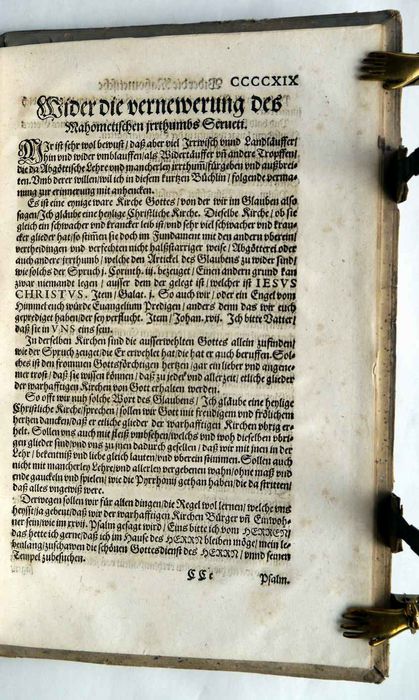 CCCCXIX
Wider die vernewerung des
Mahometischen jrrthumbs Serueti.
MIr ist sehr wol bewust/ daß aber viel Irrwisch vnnd Landläuffer/
hin vnd wider vmblauffen/ als Widertäuffer vñ andere Tropffen/
die da Abgöttische Lehre vnd mancherley irrthum̃/ fürgeben vnd außbrei-
ten. Vmb derer willen/ wil ich in diesem kurtzen Büchlin/ folgende verma-
nung zur erinnerung mit anhencken.
Es ist eine eynige ware Kirche Gottes/ von der wir im Glauben also
sagen/ Ich gläube eine heylige Christliche Kirche. Dieselbe Kirche/ ob sie
gleich ein schwacher vnd krancker leib ist/ vnd sehr viel schwacher vnd kran-
cker glieder hat/ so stim̃en sie doch im Fundament mit den andern vberein/
vertheidingen vnd verfechten nicht halßstarriger weise/ Abgötterei oder
auch andere jrrthumb/ welche den Artikel des Glaubens zu wider sind/
wie solchs der Spruch j. Corinth. iij. bezeuget/ Einen andern grund kan
zwar niemand legen/ ausser dem der gelegt ist/ welcher ist IESVS
CHRISTVS. Item/ Galat. j. So auch wir/ oder ein Engel vom
Himmel euch würde Euangelium Predigen/ anders denn das wir euch
geprediget haben/ der sey verflucht. Item/ Johan. xvij. Ich bitte Vatter/
daß sie in VNS eins sein.
In derselben Kirchen sind die ausserwehlten Gottes allein zufinden/
wie der Spruch zeuget/ die Er erwehlet hat/ die hat er auch beruffen. Sol-
ches ist den frommen Gottsförchtigen hertzen/ gar ein lieber vnd angene-
mer trost/ daß sie wissen können/ daß zu jeder vnd allerzeit/ etliche glieder
der warhafftigen Kirchen von Gott erhalten werden.
So offt wir nuh solche Wort des Glaubens/ Ich gläube eine heylige
Christliche Kirche/ sprechen/ sollen wir Gott mit freudigem vnd frölichem
hertzen dancken/ daß er etliche glieder der warhafftigen Kirchen vbrig er-
helt. Sollen vns auch mit fleiß vmbsehen/ welchs vnd woh dieselben vbri-
gen glieder sind/ vnd vns zu jnen dadurch gesellen/ daß wir mit jnen in der
Lehr/ bekentniß vnd liebe gleich lauten/ vnd vberein stimmen. Sollen auch
nicht mit mancherley Lehre/ vnd allerley vergebenen wahn/ ohne maß vnd
ende gauckeln vnd spielen/ wie die Pyrrhonij gethan haben/ die da stritten/
daß alles ungewiß were.
Derwegen sollen wir für allen dingen/ die Regel wol lernen/ welche vns
heysst/ ja gebeut/ daß wir der warhafftigen Kirchen Bürger vñ Einwoh-
ner sein/ wie im xxvij. Psalm gesagt wird/ Eins bitte ich vom HERREN/
das hette ich gerne/ daß ich im Hause des HERRN bleiben möge/ mein le-
benlang/ zuschawen die schönen Gottesdienst des HERRN/ vnnd seinen
Tempel zubesuchen.
CCc
Psalm.